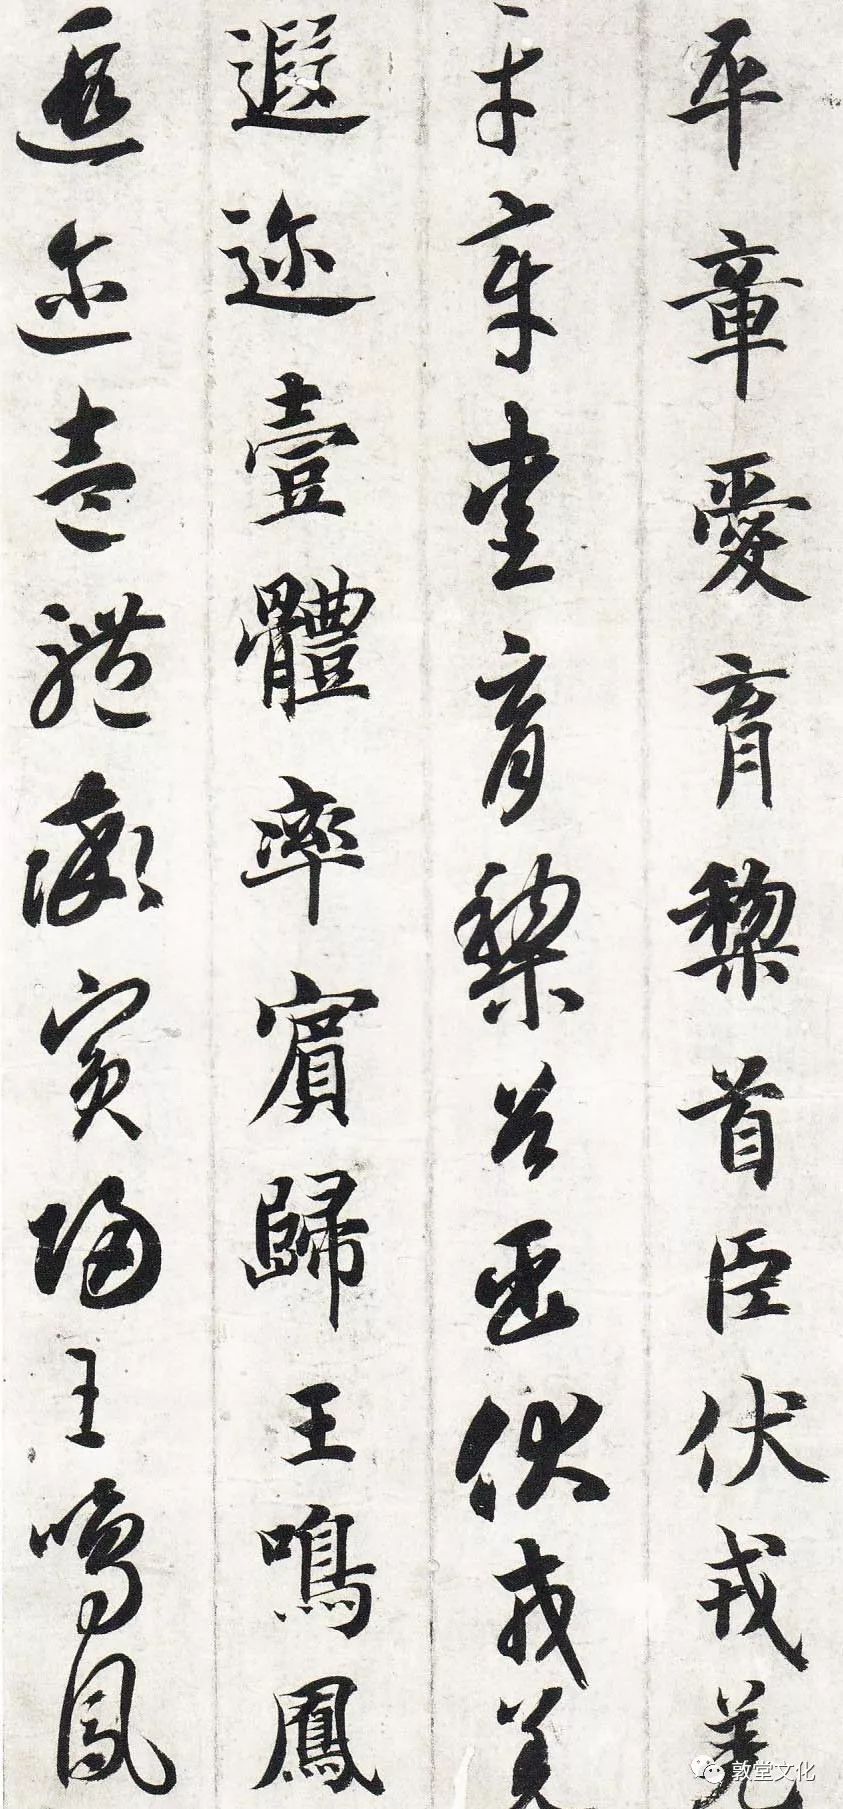 平章愛育黎首臣伏戎羌
平章愛育黎首臣伏戎羌
遐迩壹體率賓歸王鳴鳳
遐迩壹體率賓歸王鳴鳳
敦堂文化